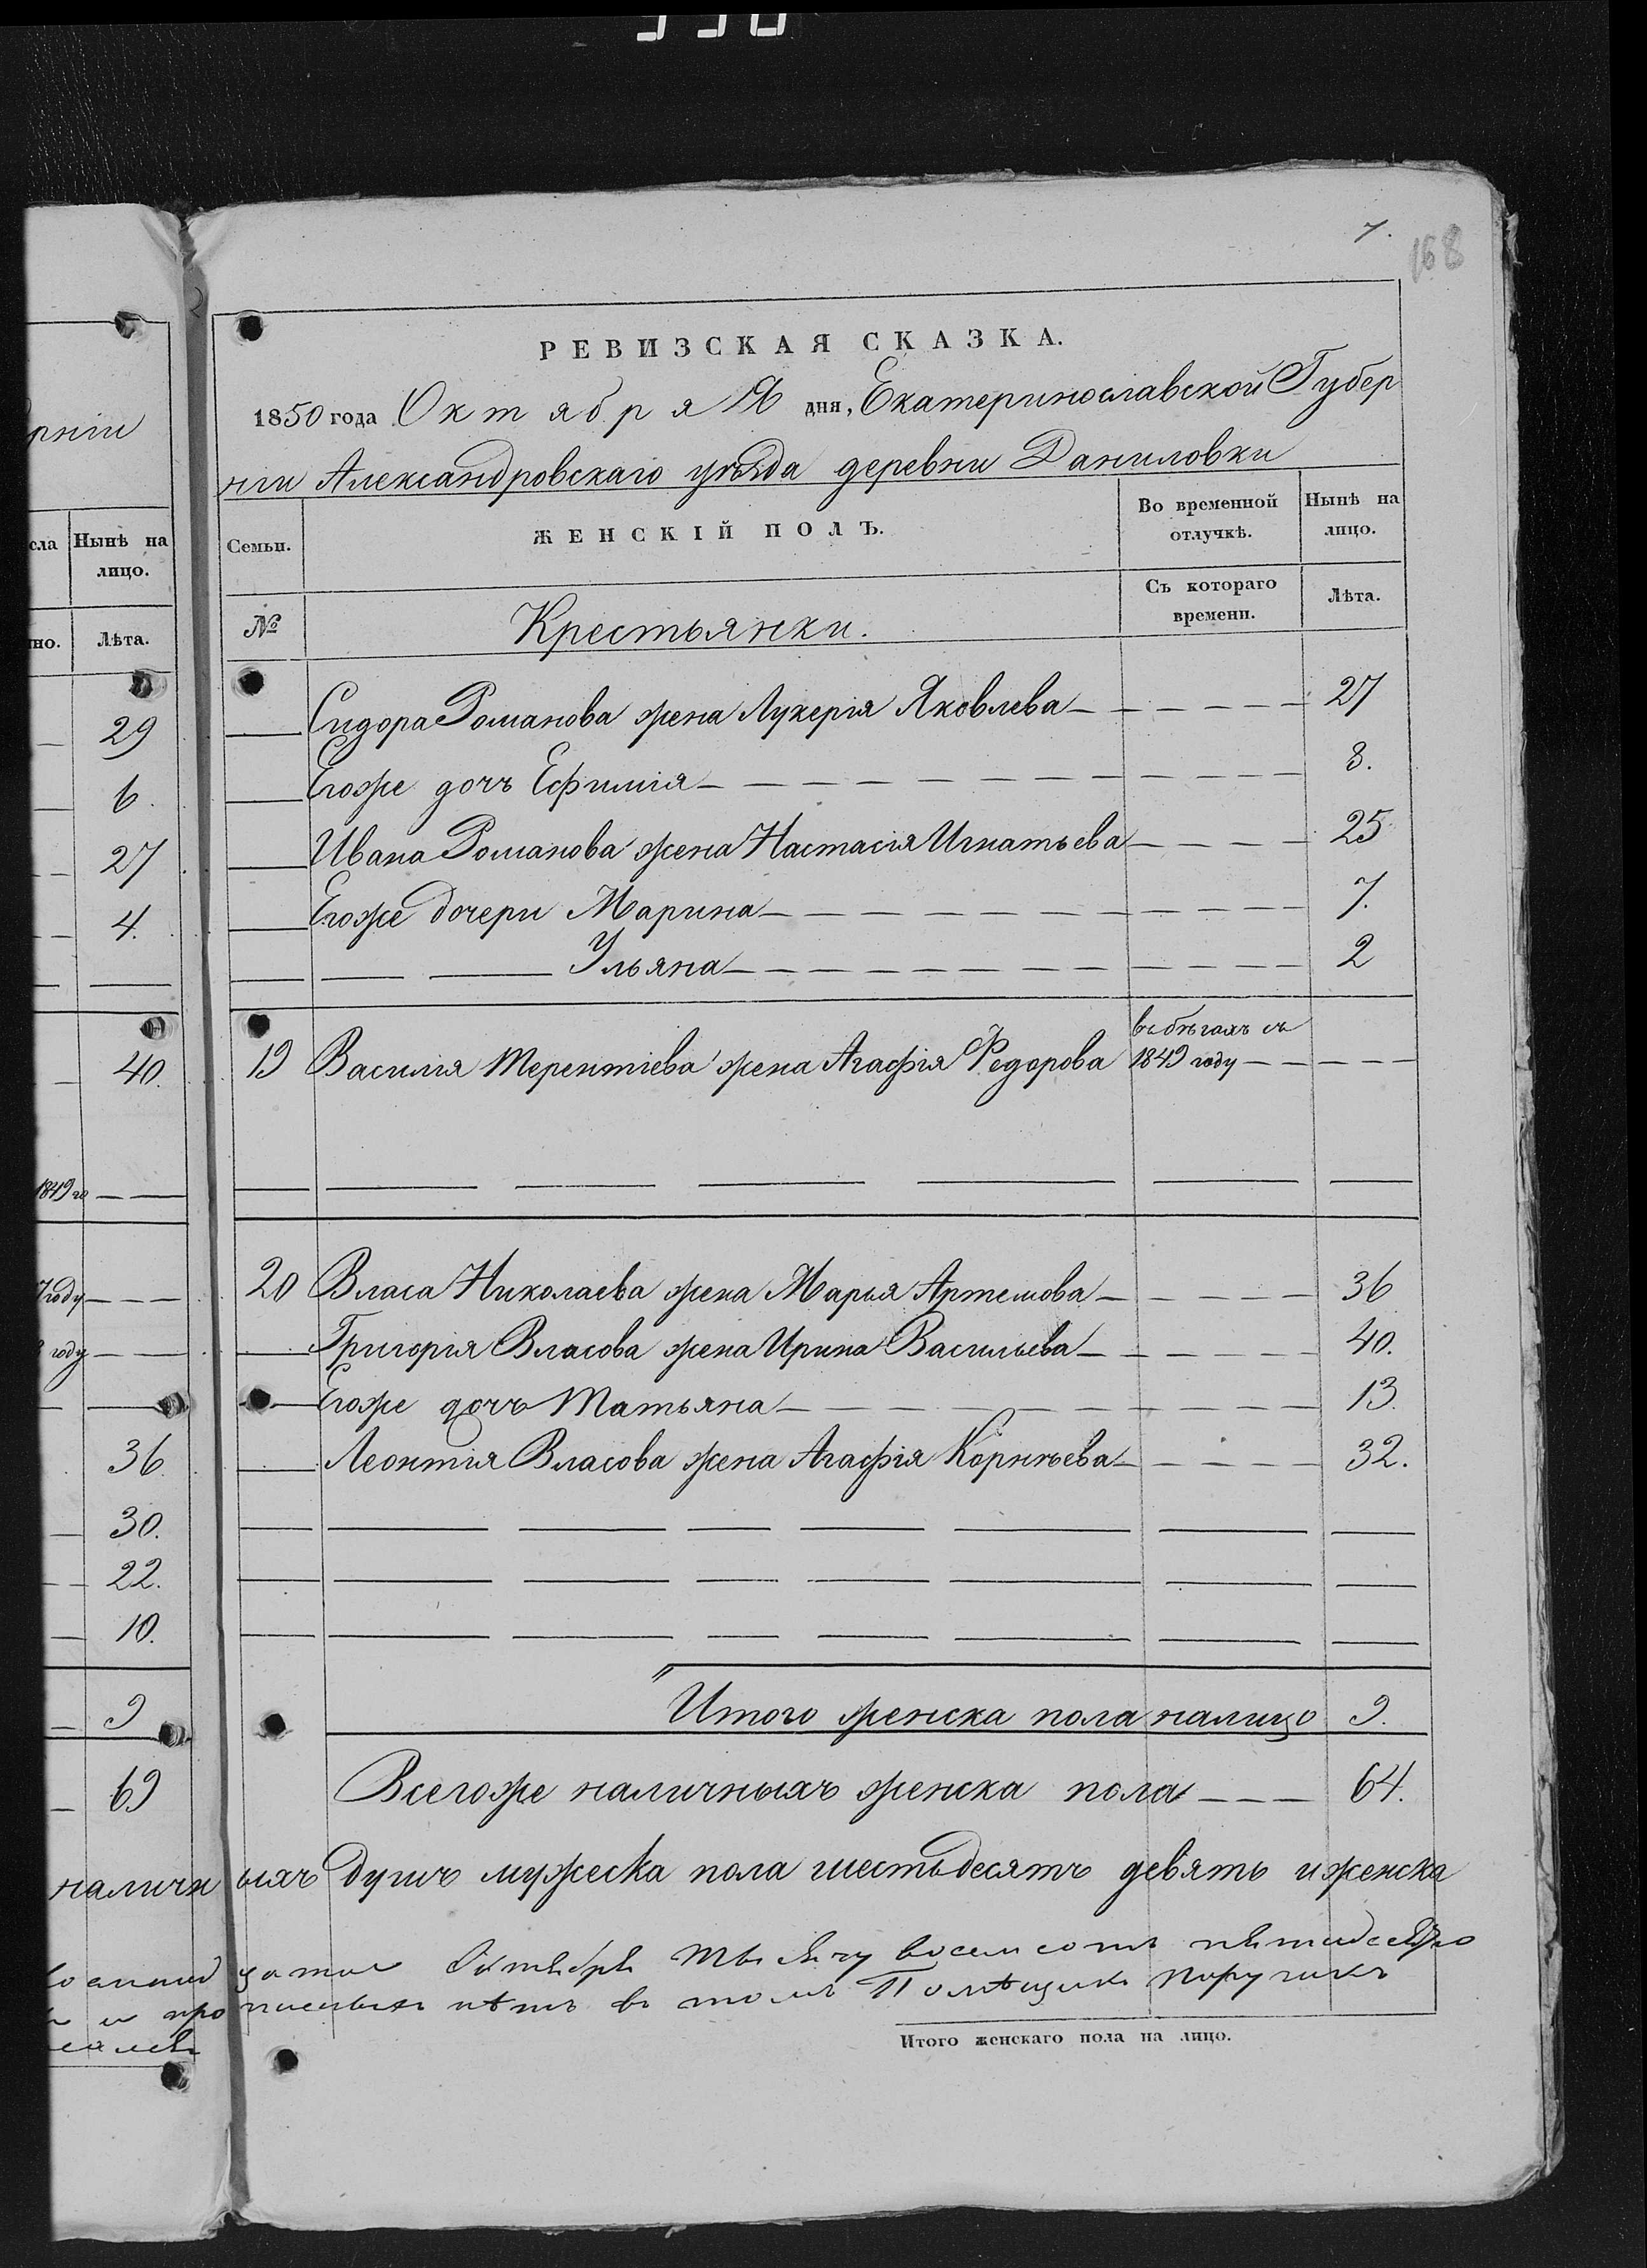 7.
168
рніи
сла Нынѣ на лицо.
но. Лѣта.
29
6.
27
4.
40.
1849 го
7 году
году
36
30.
22.
10.
9
69
РЕВИЗСКАЯ СКАЗКА.
1850 года Октября дня, Екатеринославской Губер
ніи Александровскаго уѣзда деревни Даниловки
Семьи. ЖЕНСКІЙ ПОЛЪ. Во временной отлучкѣ. Нынѣ на лицо.
№ Крестьянки. Съ котораго времени. Лѣта.
Сидора Романова жена Лукерія Яковлева 27
Егоже дочъ Ефимія 8.
Ивана Романова жена Настасія Игнатьева 25
Егоже дочери Марина 7.
Ульяна 2
въ бѣгахъ съ
19 Василія Терентіева жена Агафія Федорова 1849 году
20 Власа Николаева жена Марья Артемова 36
Григорія Власова жена Ирина Васильева 40.
Егоже дочъ Татьяна 13.
Леонтія Власова жена Агафія Корнѣева 32.
Итого женска пола налицо 9.
Всегоже наличныхъ женска пола 64.
наличныхъ душъ мужеска пола шестьдесятъ девять и женска
Октября тысячу восемсотъ
и прописныхъ нѣтъ въ томъ Помѣщикъ Поручикъ
Итого женскаго пола на лицо.